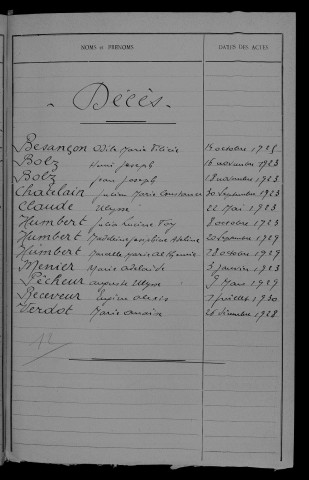 NOMS et PRÉNOMS DATES DES ACTES
- Décès -
Besançon Odile Marie Félicie octobre 1925
Bolz Henri Joseph 16 novembre 1923
Bolz Jean Joseph 18 novembre 1923
Chatelain Julien Marie Constance 30 Septembre 1923
Claude Ulysse 22 Mai 1923
Humbert Julie Lucine Foy 8 octobre 1923
Humbert Madeleine Joséphine 20 Septembre 1929
Humbert Marcelle Marie 28 octobre 1929
Menier Marie Adélaïde 3 janvier 1923
Pêcheur Auguste Ulysse 9 Mars 1929
Receveur Eugène Alexis 7 juillet 1930
Verdot Marie 26 décembre 1928
12